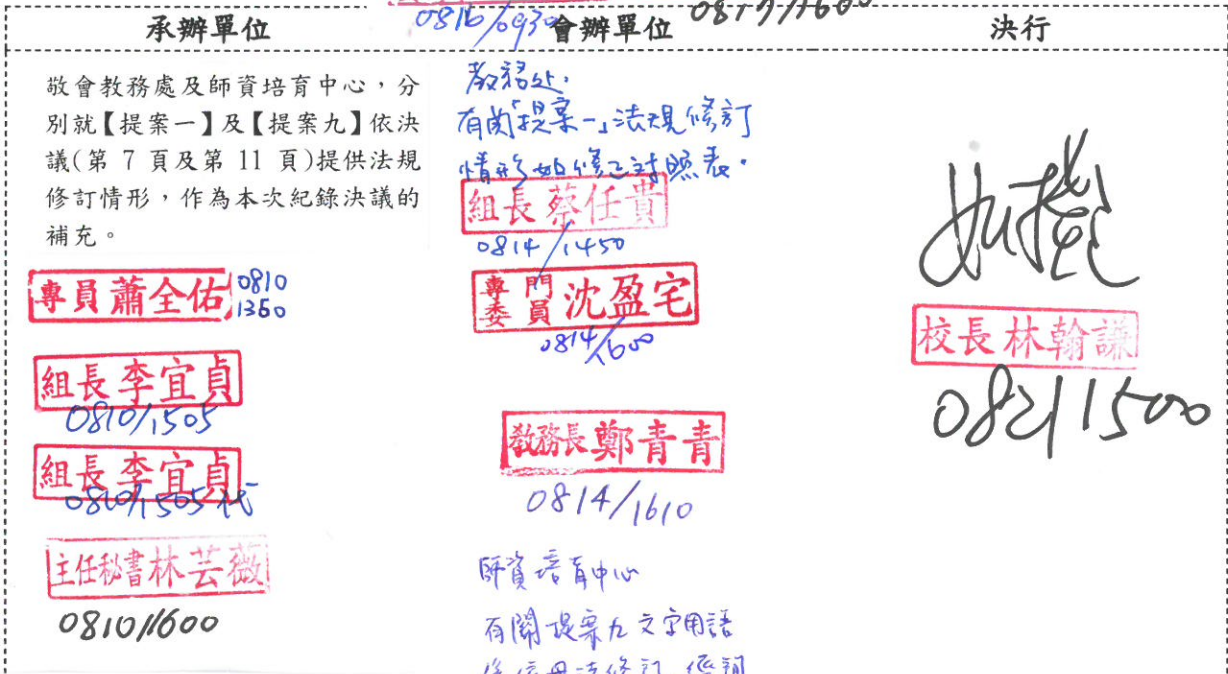 0816/0930
0817/1600
承辦單位
會辦單位
決行
敬會教務處及師資培育中心，分
別就【提案一】及【提案九】依決
議(第 7 頁及第 11 頁)提供法規
修訂情形，作為本次紀錄決議的
補充。
專員蕭全佑
0810
1350
組長李宜貞
0810/1505
組長李宜貞
0810/1505代
主任秘書林芸薇
0810/1600
教務处：
有關「提案一」法規修訂
情形如修正对照表。
組長蔡任貴
0814/1450
專門委員沈盈宅
0814/1600
教務長鄭青青
0814/1610
師資培育中心
有關提案九文字用語
如擬
校長林翰謙
0821/1500